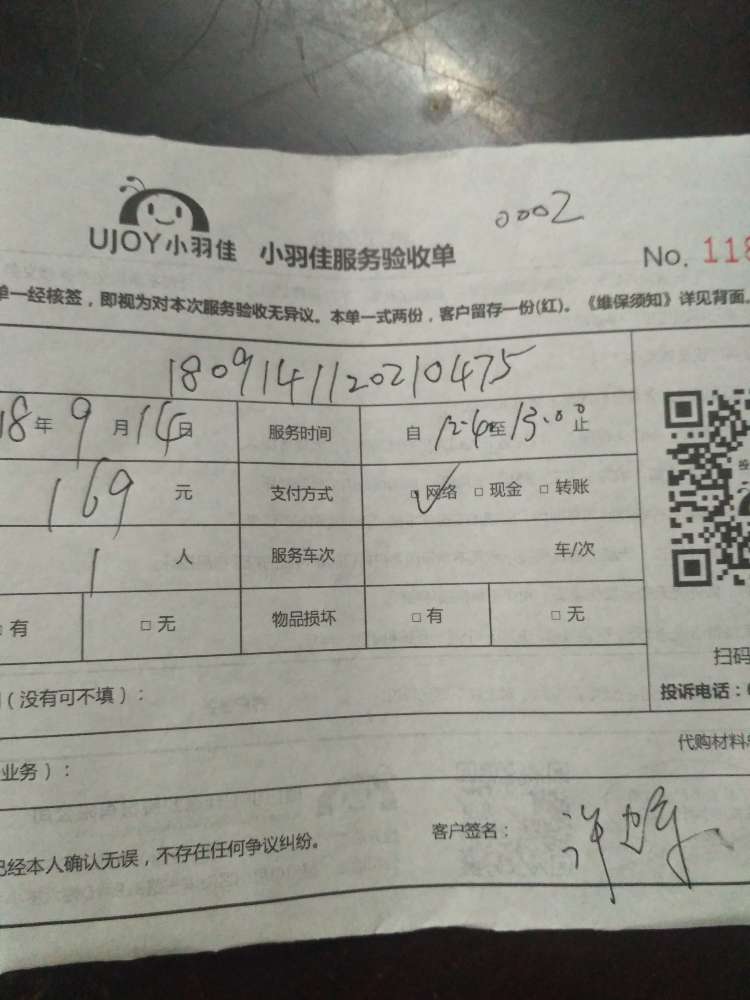 0002
UJOY小羽佳 小羽佳服务验收单 No. 118
单一经核签，即视为对本次服务验收无异议。本单一式两份，客户留存一份(红)。《维保须知》详见背面。
1809141120210475
18年9月14日 服务时间 自 至13:00止
169元 支付方式 □网络 □现金 □转账
1人 服务车次 车/次
□有 □无 物品损坏 □有 □无
扫码
（没有可不填）： 投诉电话：
业务）： 代购材料
已经本人确认无误，不存在任何争议纠纷。 客户签名：